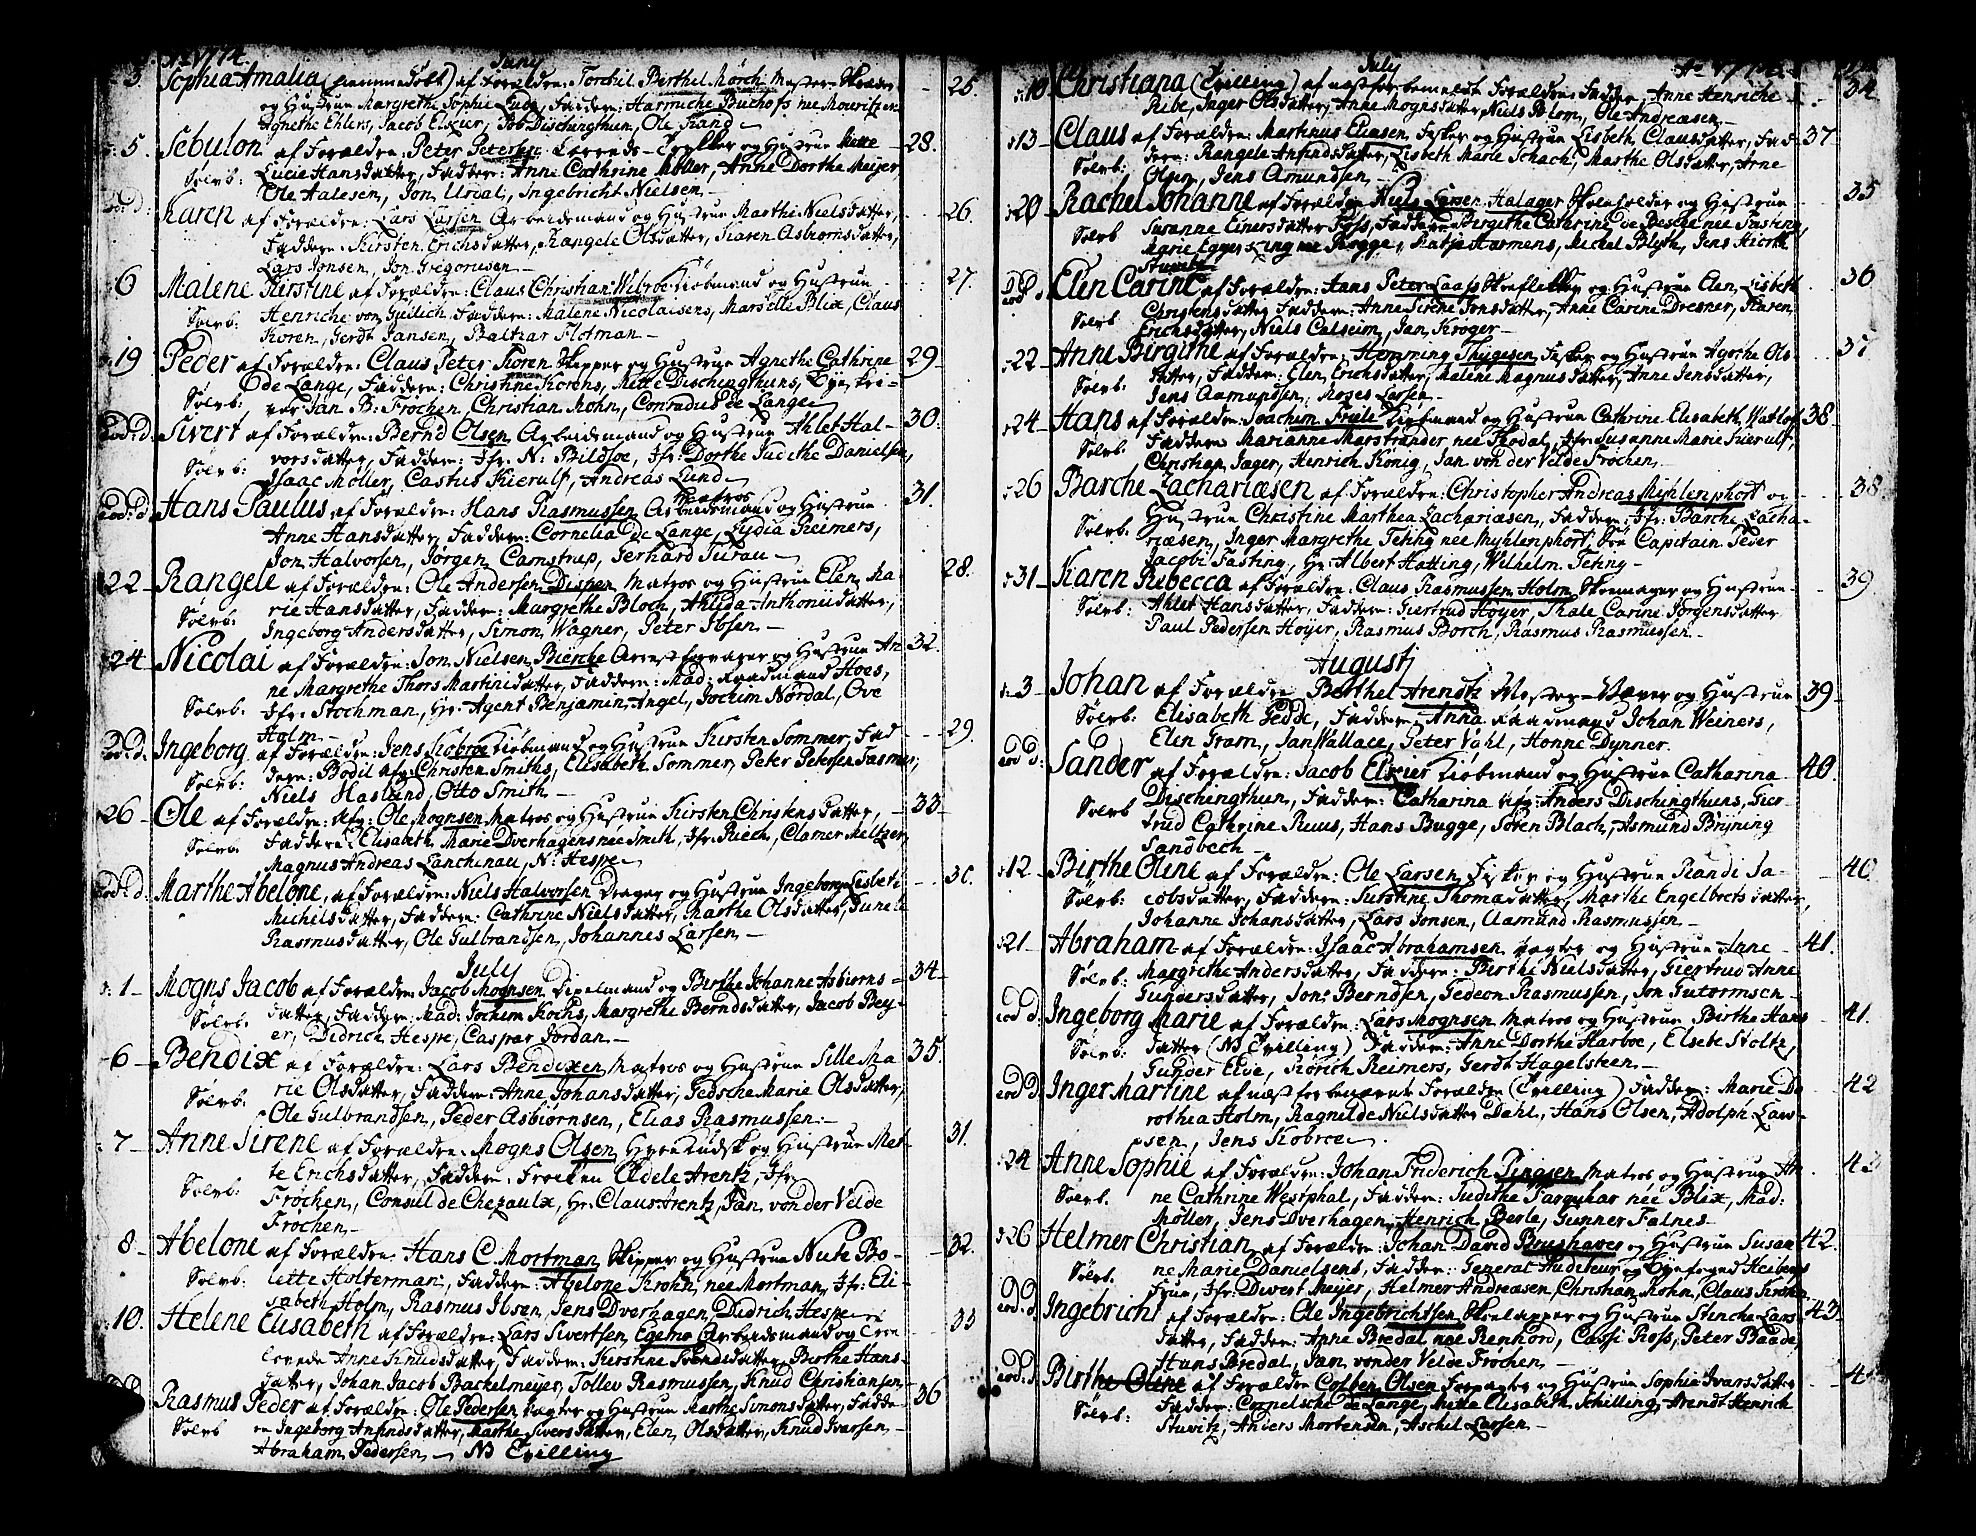 Ao 1774.
Juny
3. Sophia Amalia (hiemme døbt) af Forældre: Torchil Berthel Mørch Mester 25.
og Hustrue Margrethe Sophie Fadder: Harmiche Buchofs née Mouritzen
Agnethe Ehlers, Jacob Elxier, Job Dischingthun, Ole Fland
5. Sebulon af Forældre: Peter Petersen og Hustrue Mette 28.
Sølvb: Lucie Hansdatter, Faddere: Anne Cathrine Möller, Anne Dorthe Meijer,
Ole Aalesen, Jon Urdal, Ingebricht Nielsen
eod: d: Karen af Forældre: Lars Larsen Arbeidsmand og Hustrue Marthe Nielsdatter, 26.
Faddere: Kirsten Erichsdatter, Rangele Olsdatter, Karen Asbiørnsdatter,
Lars Jonsen, Jon Gregoriusen
6 Malene Kirstine af Forældre: Claus Christian Wibroe Kiöbmand og Hustrue 27.
Sølvb: Henriche von Gülich, Faddere: Malene Nicolaisens, Marselle Blix, Claus
Koren, Gerdt Jansen, Baltzar Flotman
19 Peder af Forældre: Claus Peter Koren Skipper og Hustrue Agnethe Cathrine 29
Sølvb: de Lange, Faddere: Christine Korens, Mette Dischingthuns, Øye, Fre-
var Jan B: Fröchen, Christian Mohn, Conradus de Lange
eod: d. Sivert af Forældre: Bernd Olsen Arbeidsmand og Hustrue Ahlet Hal- 30.
Sølvb: vorsdatter, Faddere: Jfr. N: Bildsøe, Jfr: Dorthe Judithe Danielsen,
Isaac Möller, Castus Kierulf, Andreas Lund
eod: d Hans Paulus af Forældre: Hans Rasmussen Matros og Hustrue 31.
Anne Hansdatter, Faddere: Cornelia de Lange, Lydia Reimers,
Jon Halvorsen, Jörgen Camstrup, Gerhard Turau
22 Rangele af Forældre: Ole Andersen Dispen Matros og Hustrue Elen Ma 28.
Sølvb: rie Hansdatter, Faddere: Margrethe Bloch, Ahlida Anthoniidatter,
Ingeborg Andersdatter, Simon Wagner, Peter Ibsen
24 Nicolai af Forældre: Jon Nielsen Bierche Arrestforvarer og Hustrue An 32.
ne Margrethe Thors Martinidatter, Faddere: Mad: Raadmand Hoes,
Sølvb. Jfr: Stochman, Hr. Agent Benjamin Angel, Jochim Nordal, Ove
Holm
eod: d. Ingeborg af Forældre: Jens Kobroe Kiöbmand og Hustrue Kirsten Sommer, Fad 29.
Sølvb: dere: Bodil afg: Christen Smiths, Elisabeth Sommer, Peter Petersen Fasmer,
Niels Haslund, Otto Smith
26 Ole af Forældre: Afg: Ole Mognsen Matros og Hustrue Kirsten Christensdatter, 33
Sølvb. Faddere: Elisabth Marie Dverhagens née Smith, Jfr: Riech, Clamer Meltzer,
Magnus Andreas Lanchenau, N: Hespe
eod: d. Marthe Abelone, af Forældre: Niels Halvorsen Drager og Hustrue Ingeborg Lisbet 30.
Michelsdatter, Faddere: Cathrine Nielsdatter, Marthe Olsdatter, June
Rasmusdatter, Ole Gulbrandsen, Johannes Larsen
July
1 Mogns Jacob af Forældre: Jacob Mognsen Dixelmand og Birthe Johanne Asbiørns- 34
Sølvb. datter, Faddere: Mad: Jochim Kochs, Margrethe Berndsdatter, Jacob Bey-
er, Didrich Hespe, Caspar Jordan
6 Bendix af Forældre: Lars Bendixen Matros og Hustrue Sille Ma 35.
Sølvb. rie Olsdatter, Faddere: Anne Johansdatter, Gedsche Marie Olsdatter,
Ole Gulbrandsen, Peder Asbiörnsen, Elias Rasmussen
7 Anne Sirene af Forældre: Mogns Olsen og Hustrue Mar- 31.
te Erichsdatter, Faddere: Frøchen Adele Arentz, Jfr:
Sølvb: Fröchen, Consul de Chezaulx, Hr. Claus Arentz, Jan von der Velde
Fröchen
8 Abelone af Forældre: Hans C. Mortman Skipper og Hustrue Niele Bo- 32.
Sølvb: lette Holterman, Faddere: Abelone Krohn née Mortman, Jfr: Eli-
sabeth Holm, Rasmus Ibsen, Jens Dverhagen, Didrich Hespe
10. Helene Elisabeth af Forældre: Lars Sivertsen Egemo Arbeidsmand og Tro 33
lovede Anne Knudsdatter, Faddere: Kierstine Svendsdatter, Birthe Hans-
datter, Johan Jacob Bachelmeyer, Tollev Rasmussen, Knud Christiansen
Rasmus Peder af Forældre: Ole Pedersen Vagter og Hustrue Marthe Simonsdatter, Fadde- 36
Sølvb re Ingeborg Anfindsdatter, Marthe Siversdatter, Elen Olsdatter, Knud Ivarsen
Abraham Pedersen NB Tvilling
July Ao 1774
10 Christiana (Tvilling) af næstforbemeldte Forældre, Fadder Anne Henriche 34
Ribe, Inger Olsdatter, Anne Mognsdatter, Niels Blom, Ole Andreasen
13 Claus af Forældre: Martinus Eliasen, Fisker og Hustrue Lisbeth Clausdatter, Fad 37
Sølvb: dere: Rangele Anfindsdatter, Lisbeth Marie Schach, Marthe Olsdatter, Arne
Olsen, Jens Amundsen
20 Rachel Johanne af Forældre Niels Larsen Halager Skoeholder og Hustrue 35
Sølvb Susanne Einersdatter Foss, Faddere: Birgithe Cathrine de Besche née Fasting,
Marie Eggerking née Rogge, Katje Harmens, Michel Blyth, Jens Hiorth
Stuwitz
eod d. Elen Carine af Forældre: Hans Peter Laass Skoeflicker og Hustrue Elen Lisbeth 36
Sølvb Christensdatter Faddere: Anne Sirene Jonsdatter, Anne Carine Dresner, Karen
Erichsdatter, Niels Calseim, Jan Kröger
22 Anne Birgithe af Forældre: Hemming Thygesen, Fisker og Hustrue Agethe Ols- 37
Sølvb: datter, Faddere: Elen Erichsdatter, Malene Magnusdatter, Anne Jensdatter,
Jens Aamundsen, Moses Larsen
24 Hans af Forældre: Joachim Friele Kiöbmand og Hustrue Cathrine Elisabeth Wallof 38
Sølvb: Faddere Marianne Marstrander née Flodal, Jfr: Susanne Marie Kierulf,
Christian Jager, Henrich König, Jan von der Velde Fröchen
26 Barche Zachariæsen af Forældre: Christopher Andreas Myhlenphort og 38
Sølvb: Hustrue Christine Marthea Zachariæsen, Faddere: Jfr: Barche Zacha-
riæsen, Inger Margrethe Tehng née Myhlenphort, Hr: Capitain Peder
Jacobi Fasting, Hr: Albert Hatting, Wilhelm Tehng
31 Karen Rebecca af Forældre: Claus Rasmussen Holm Skoemager og Hustrue 39
Sølvb: Ahlet Hansdatter, Faddere: Giertrud Höyer, Thale Carine Jørgensdatter
Paul Pedersen Höyer, Rasmus Borch, Rasmus Rasmussen
Augustj
3 Johan af Forældre Berthel Arendtz Mester Væver og Hustrue 39
Sølvb: Elisabeth Gedde, Faddere: Anna Raadmand Johan Weiners,
Elen Gram, Jan Wallace, Peter Vahl, Honne Dynner.
eod d: Sander af Forældre: Jacob Elxier Kiöbmand og Hustrue Catharina 40.
Sølvb Dischingthun, Faddere: Catharina Afg: Anders Dischingthuns, Gier-
trud Cathrine Ruus, Hans Bugge, Sören Blach, Asmund Bryning
Sandbech
12 Birthe Oline af Forældre: Ole Larsen Fisker og Hustrue Randi Ja- 40
Sølvb: cobsdatter, Faddere: Kirstine Thomadatter, Marthe Engelbrets datter,
Johanne Johansdatter, Lars Jonsen, Aamund Rasmussen
21 Abraham af Forældre: Isaac Abrahamsen Vagter og Hustrue Anne 41.
Sølvb: Margrethe Andersdatter, Faddere: Birthe Nielsdatter, Giertrud Anne
Gundersdatter, Jon Berndsen, Gedeon Rasmussen, Jon Gutormsen
eod d. Ingeborg Marie af Forældre: Lars Mognsen Matros og Hustrue Birthe Hans 41.
Sølvb: datter (NB Tvilling) Faddere: Anne Dorthe Harboe, Elsebe Stoltz,
Gunder Elve, Didrich Reimers, Gerdt Hagelsteen
eod d. Inger Martine af næst forbenævnte Forældre (Tvilling) Faddere: Marie Do 42
rothea Holm, Ragnilde Nielsdatter Dahl, Hans Olsen, Adolph Lars-
sen, Jens Kobroe
24 Anne Sophie af Forældre: Johan Friderich Pingsen Matros og Hustrue An 43
Sølvb. ne Cathrine Westphal, Faddere: Judithe Farquhar née Blix, Mad:
Möller, Jens Dverhagen, Henrich Berle, Gunner Falnes
26 Helmer Christian af Forældre: Johan David Brushaver og Hustrue Susan 42.
Sølvb. ne Marie Danielsens, Faddere: General Auditeur og Byefoged Heibergs
Frue, Jfr. Divert Meyer, Helmer Andreæsen, Christian Mohn, Claus Krohn
eod. d Ingebricht af Forældre: Ole Ingebrichtsen og Hustrue Stinche Lars 43
datter, Faddere: Anne Bredal née Renhord, Cassi Ross, Peter Baade,
Hans Bredal, Jan vonder Velde Fröchen
eod: d. Birthe Oline af Forældre Colben Olsen og Hustrue Sophia Ivarsdatter 44
Sølvb. Faddere: Cornelsche de Lange, Mette Elisabeth Schilling, Arendt Henrich
Stuvitz, Anders Mortensen, Aschel Larsen